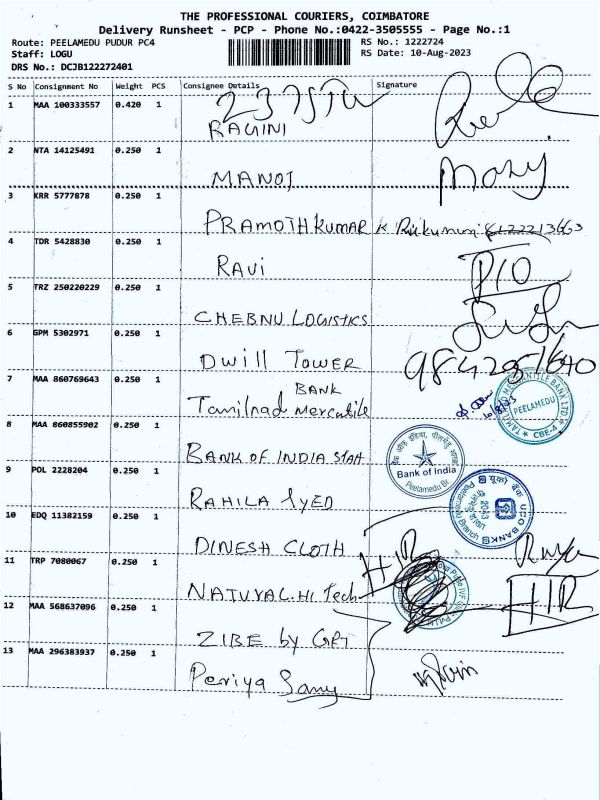 THE PROFESSIONAL COURIERS, COIMBATORE
Delivery Runsheet - PCP - Phone No.:0422-3505555 - Page No.:1
Route: PEELAMEDU PUDUR PC4
RS No.: 1222724
Staff: LOGU
RS Date: 10-Aug-2023
DRS No.: DCJB122272401
S No Consignment No Weight PCS Consignee Details Signature
1 MAA 100333557 0.420 1
RAGINI
2 NTA 14125491 0.250 1
MANOJ Mary
3 KRR 5777878 0.250 1
PRAMOTHKUMAR K 8122213663
4 TDR 5428830 0.250 1
RAVI P/O
5 TRZ 250220229 0.250 1
CHEBNU LOGISTICS
6 GPM 5302971 0.250 1
DWILL TOWER 9842951640
7 MAA 860769643 0.250 1
BANK
Tamilnad Mercantile
TAMILNAD MERCANTILE BANK LTD PEELAMEDU CBE-4
8 MAA 860855902 0.250 1
BANK OF INDIA STAH
Bank of India
Peelamedu Br.
9 POL 2228204 0.250 1
RAHILA SYED
यूको बैंक
UCO BANK
2043
10 EDQ 11382159 0.250 1
DINESH CLOTH H/R
11 TRP 7080067 0.250 1
NATUVAL.Hi Tech H/R
12 MAA 568637096 0.250 1
ZIBE by GRT
13 MAA 296383937 0.250 1
Periya Samy